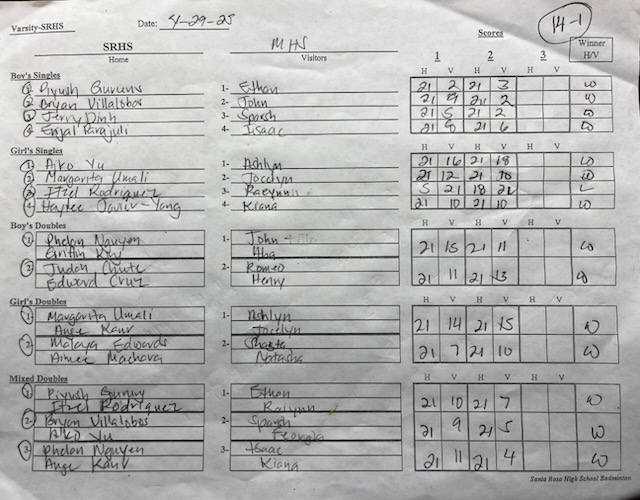 Varsity-SRHS Date: 4-29-25 14-1
SRHS MHS Scores
Home Visitors 1 2 3 Winner H/V
Boy's Singles H V H V H V
1 Piyush Gurung 1- Ethan 21 2 21 3 W
2 Bryan Villalobos 2- John 21 9 21 2 W
3 Jerry Dinh 3- Sparsh 21 5 21 2 W
4 Parajuli 4- Isaac 21 8 21 6 W
Girl's Singles H V H V H V
1 Aiko Yu 1- Ashlyn 21 16 21 18 W
2 Margarita Umali 2- Jocelyn 21 12 21 10 W
3 Itzel Rodriguez 3- Raeynn 5 21 18 21 L
4 Haylee 4- Kiana 21 10 21 10 W
Boy's Doubles H V H V H V
1 Phelan Nguyen 1- John
Griffin 21 15 21 11 W
2 Judah Chute 2- Romeo
Edward Cruz Henry 21 11 21 13 W
Girl's Doubles H V H V H V
1 Margarita Umali 1- Ashlyn
Ange Kaur Jocelyn 21 14 21 15 W
2 Malaya Edwards 2-
Aimee Machava Natasha 21 7 21 10 W
Mixed Doubles H V H V H V
1 Piyush Gurung 1- Ethan
Itzel Rodriguez Raiynn 21 10 21 7 W
2 Bryan Villalobos 2- Sparsh
Aiko Yu Georgia 21 9 21 5 W
3 Phelan Nguyen 3- Isaac
Ange Kaur Kiana 21 11 21 4 W
Santa Rosa High School Badminton